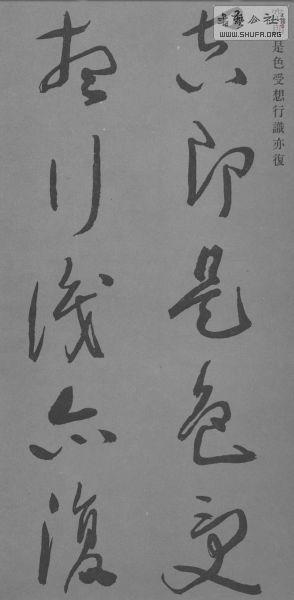 空即是色受
想行識亦復
是色受想行識亦復
書藝公社
WWW.SHUFA.ORG